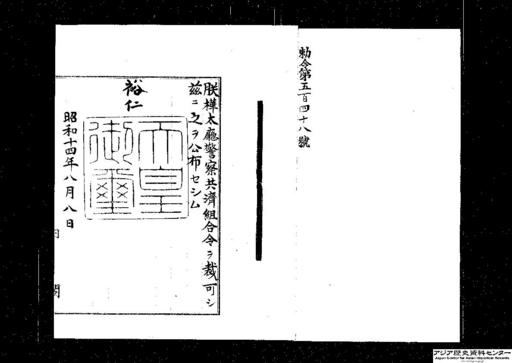 勅令第五百四十八號
朕樺太廳警察共濟組合令ヲ裁可シ
茲ニ之ヲ公布セシム
裕仁
天皇御璽
昭和十四年八月八日
内閣
アジア歴史資料センター
Japan Center for Asian Historical Records